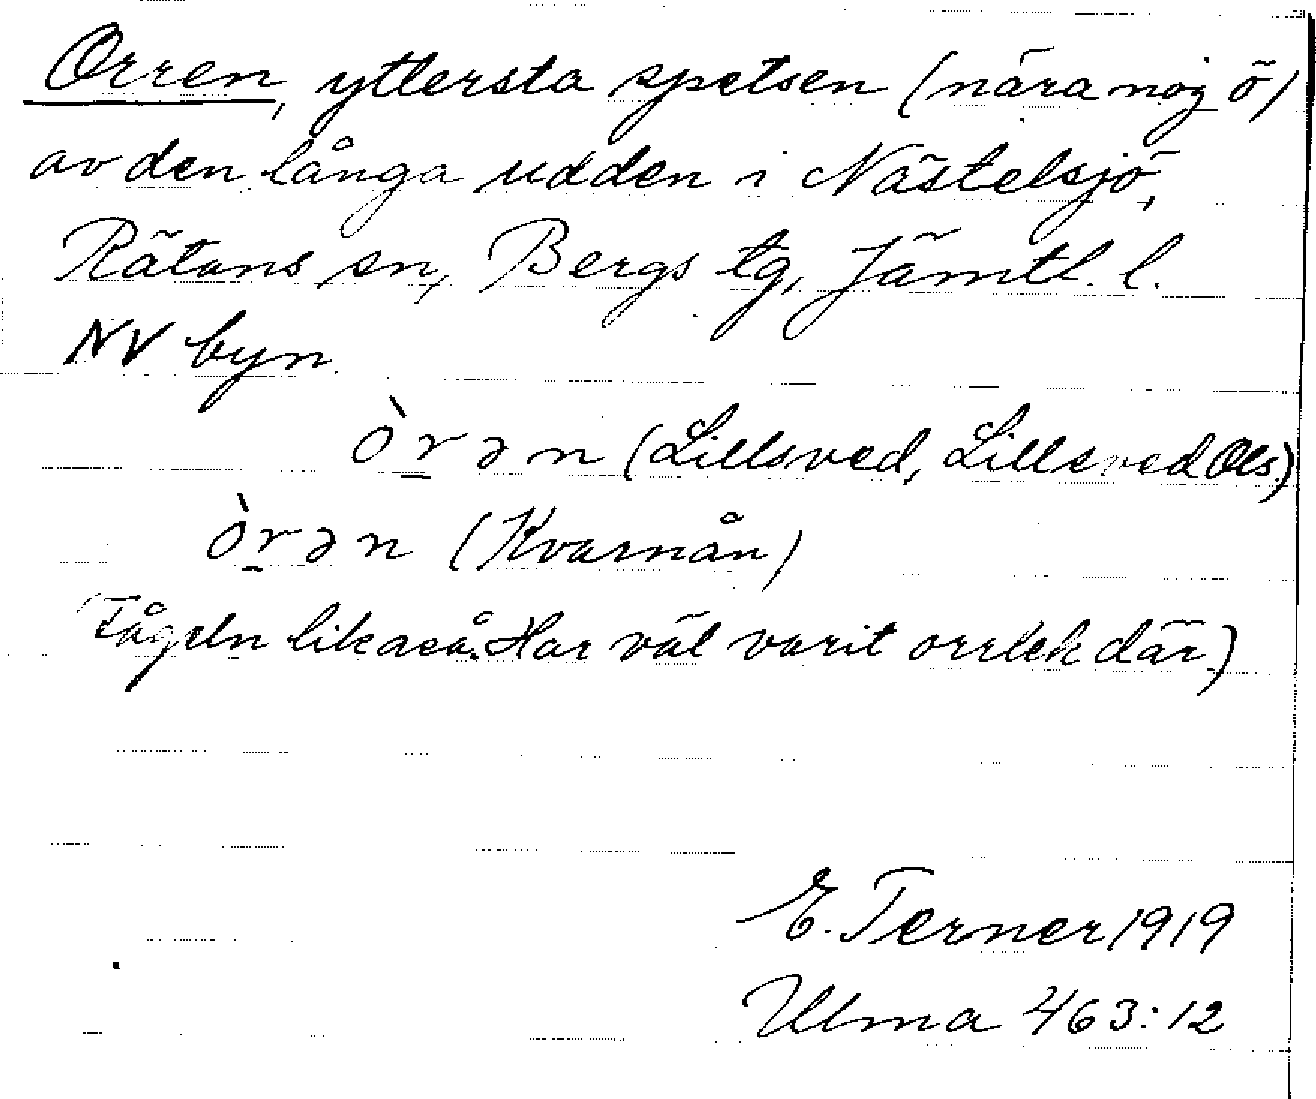 Orren, yttersta spetsen (nära nog ö)
av den långa udden i Nästelsjö,
Rätans sn, Bergs tg, Jämtl. l.
NV byn.
òr̲ən (Lillsved, Lillsved Ols.)
òr̲ən (Kvarnån)
(Fågeln likaså. Har väl varit orrlek där.)
E. Terner 1919
Ulma 463:12